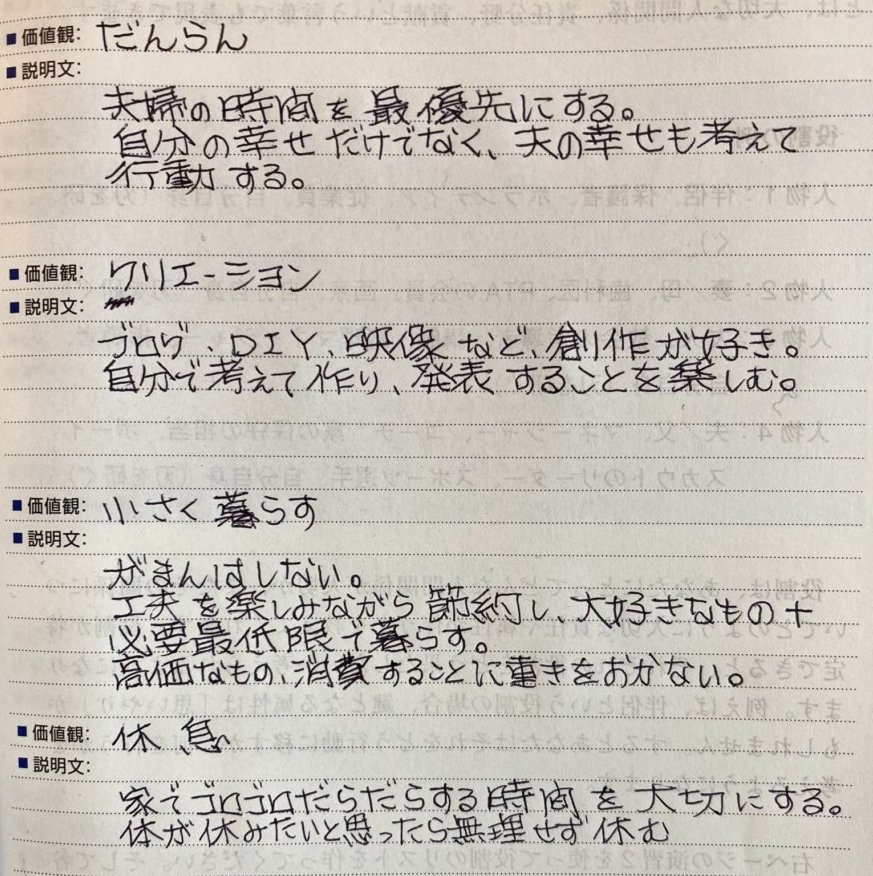 ■ 価値観: だんらん
■ 説明文:
夫婦の時間を最優先にする。
自分の幸せだけでなく、夫の幸せも考えて
行動する。
■ 価値観: クリエーション
■ 説明文:
ブログ、DIY、映像など、創作が好き。
自分で考えて作り、発表することを楽しむ。
■ 価値観: 小さく暮らす
■ 説明文:
がまんはしない。
工夫を楽しみながら節約し、大好きなもの+
必要最低限で暮らす。
高価なもの、消費することに重きをおかない。
■ 価値観: 休息
■ 説明文:
家でゴロゴロだらだらする時間を大切にする。
体が休みたいと思ったら無理せず休む